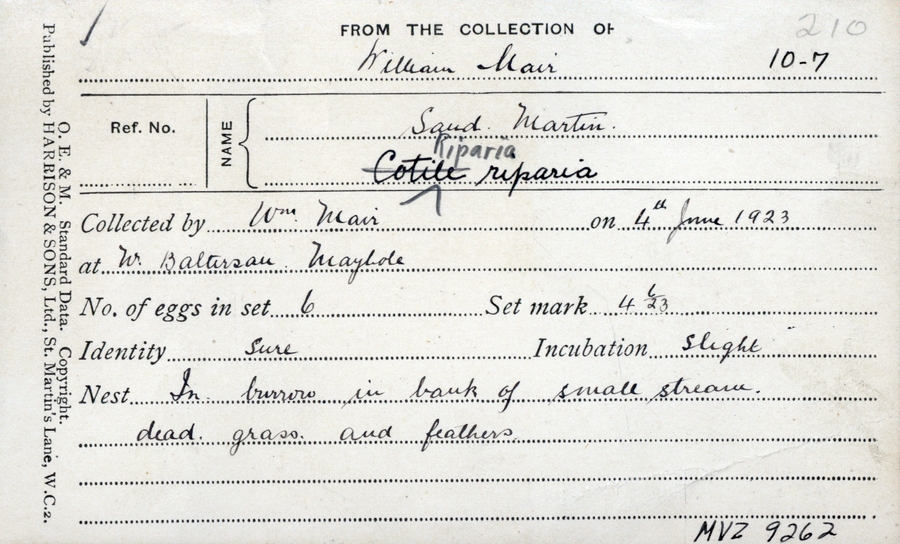 210
FROM THE COLLECTION OF
William Mair 10-7
Ref. No. NAME Sand Martin.
Riparia
Cotile riparia
Collected by Wm. Mair on 4th June 1923
at Nr. Baltersan. Maybole
No. of eggs in set 6 Set mark 4 6/23
Identity Sure Incubation Slight
Nest In burrow in bank of small stream.
dead. grass. and feathers.
MVZ 9262
O. E. & M. Standard Data. Copyright.
Published by HARRISON & SONS, Ltd., St. Martin's Lane, W.C.2.